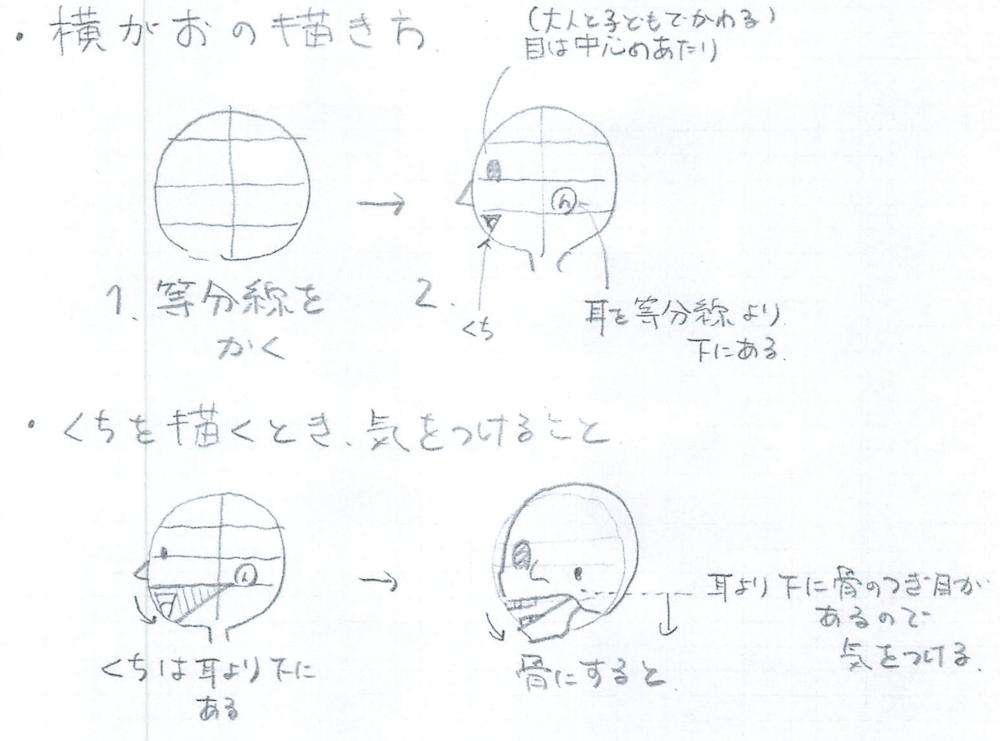 ・横がおの描き方
(大人と子どもでかわる)
目は中心のあたり
1. 等分線を
かく
2.
くち
耳を等分線より
下にある
・くちを描くとき、気をつけること
くちは耳より下に
ある
骨にすると
耳より下に骨のつぎ目が
あるので
気をつける